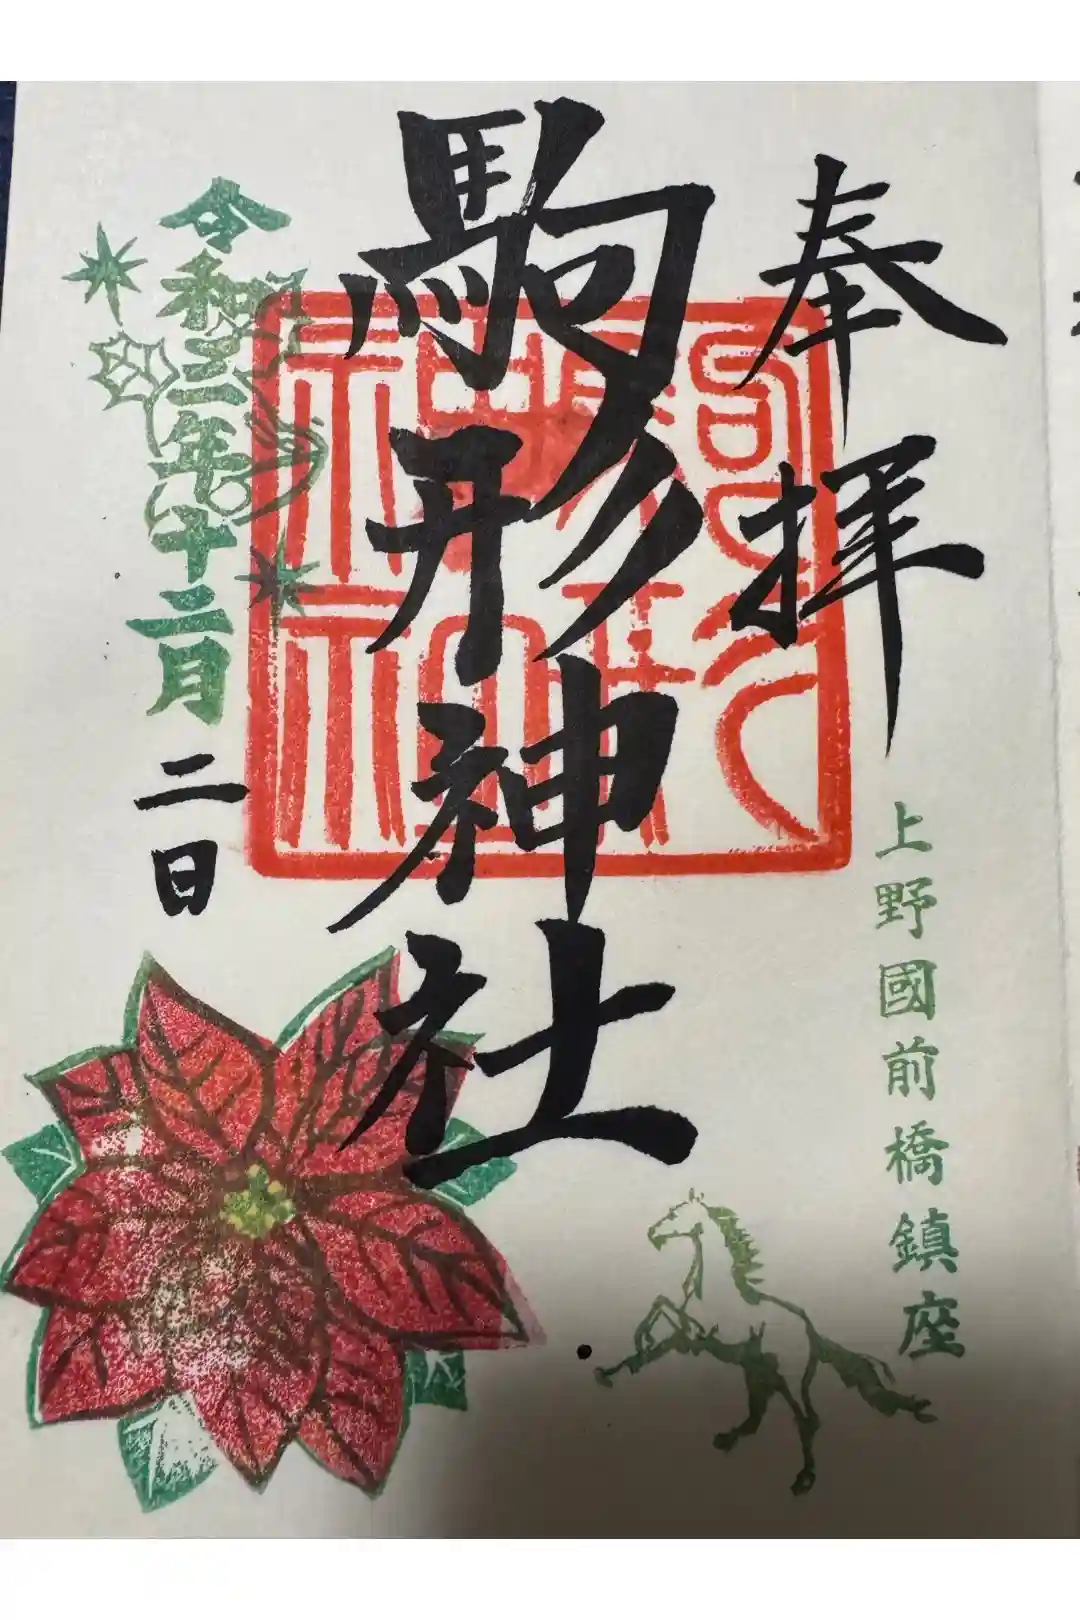 奉拝
上野國前橋鎮座
駒形神社
駒形神社
令和三年十二月
二日